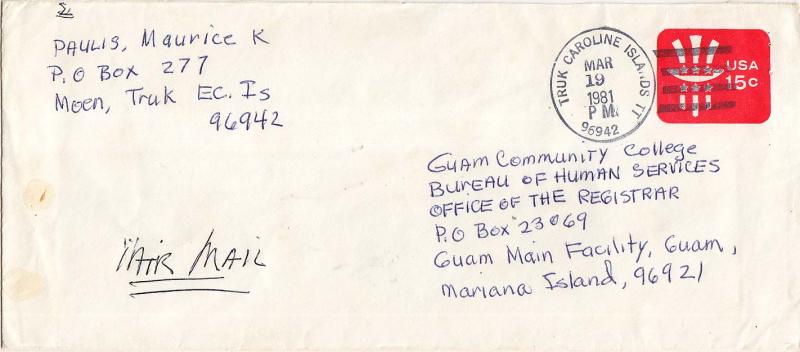 PAULIS, Maurice K
P.O Box 277
Moen, Truk EC. Is
96942
TRUK CAROLINE ISLANDS TT
MAR
19
1981
PM
96942
USA
15c
Guam Community College
Bureau of Human Services
Office of the Registrar
P.O Box 23069
Guam Main Facility, Guam,
Mariana Island, 96921
Air Mail